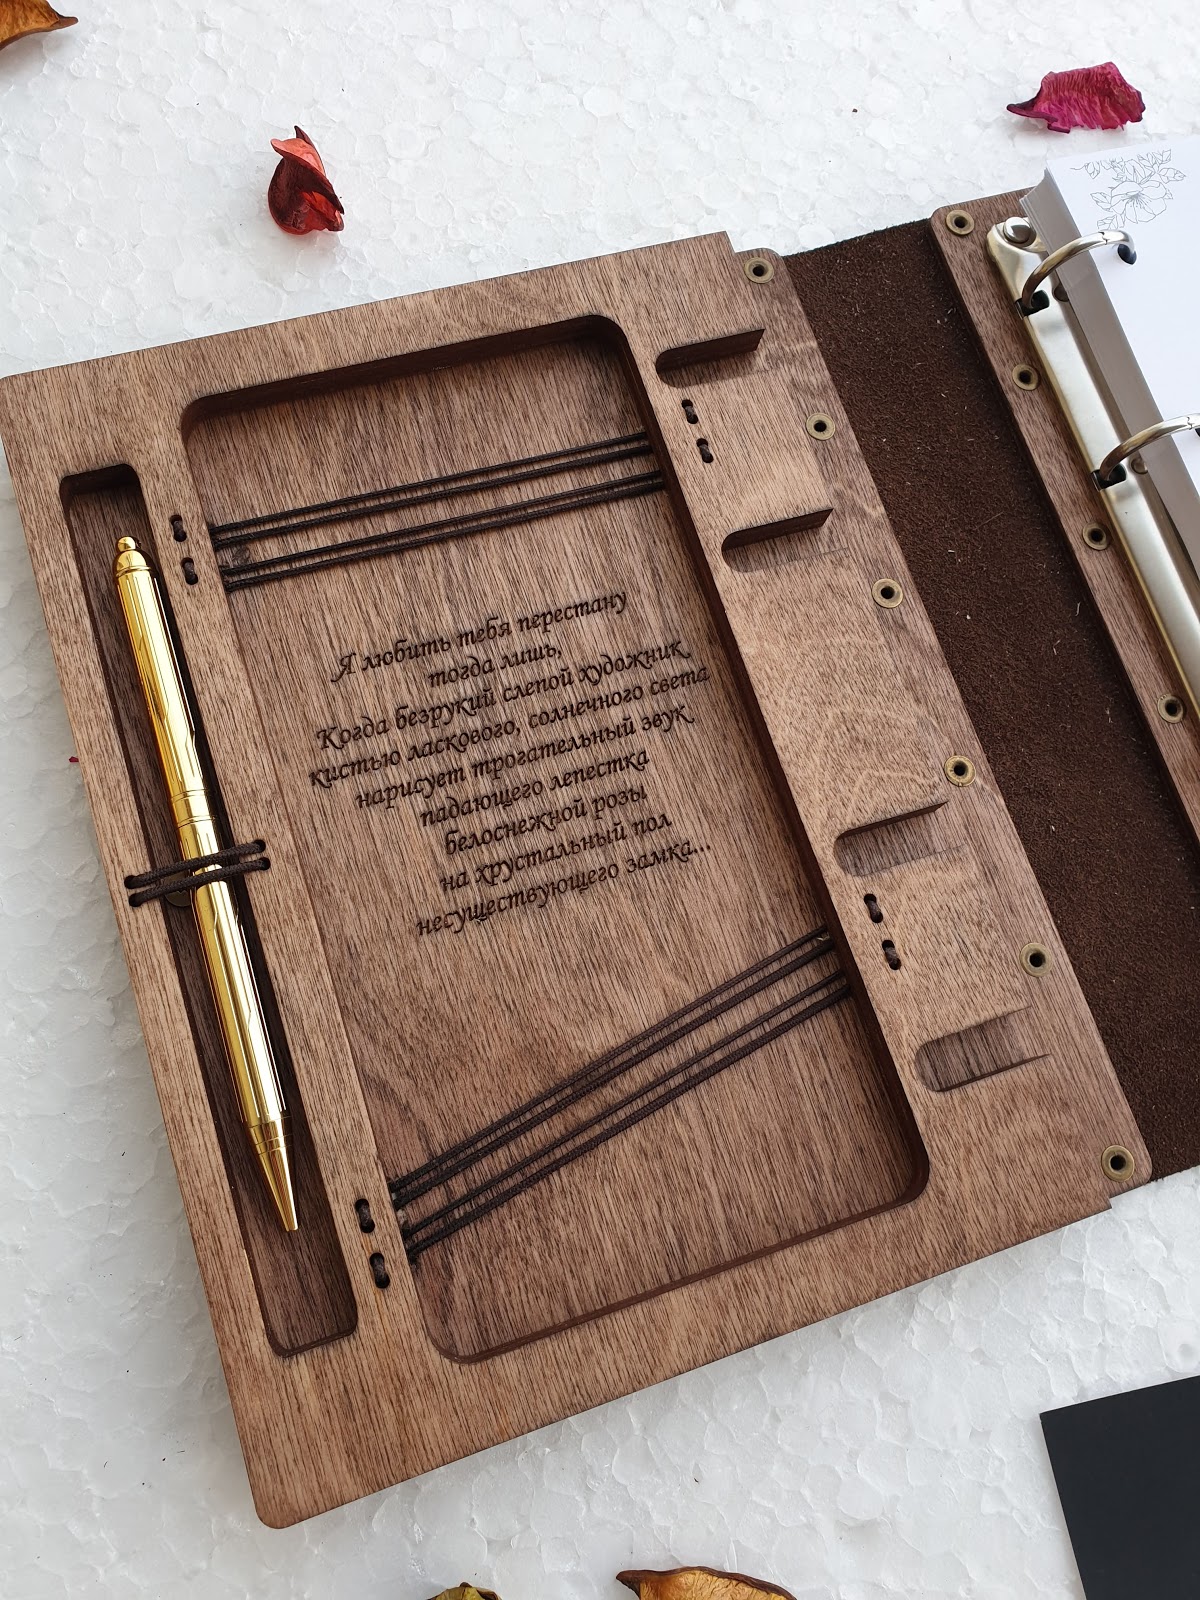 Я любить тебя перестану
тогда лишь,
Когда безрукий слепой художник
кистью ласкового, солнечного света
нарисует трогательный звук
падающего лепестка
белоснежной розы
на хрустальный пол
несуществующего замка...